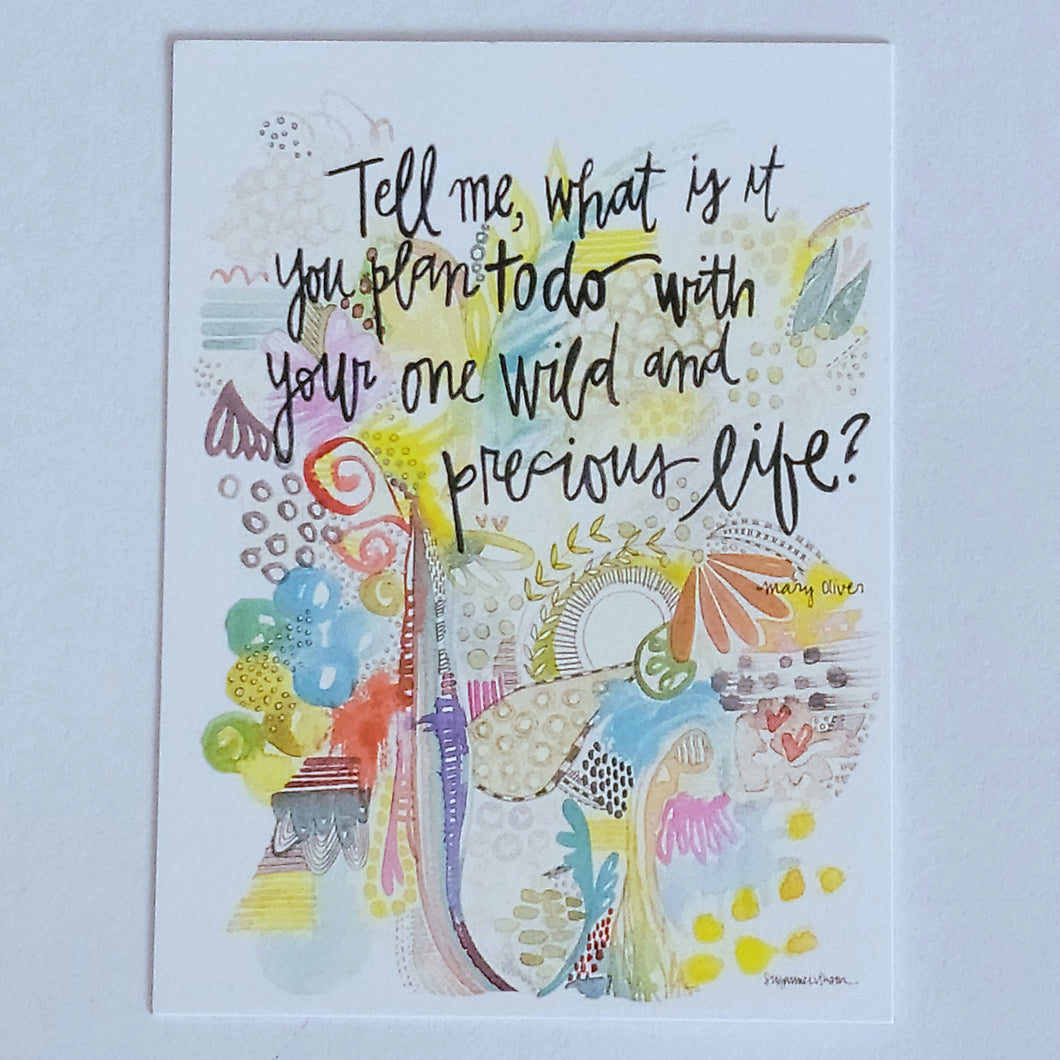 Tell me, what is it
you plan to do with
your one wild and
precious life?
-mary oliver